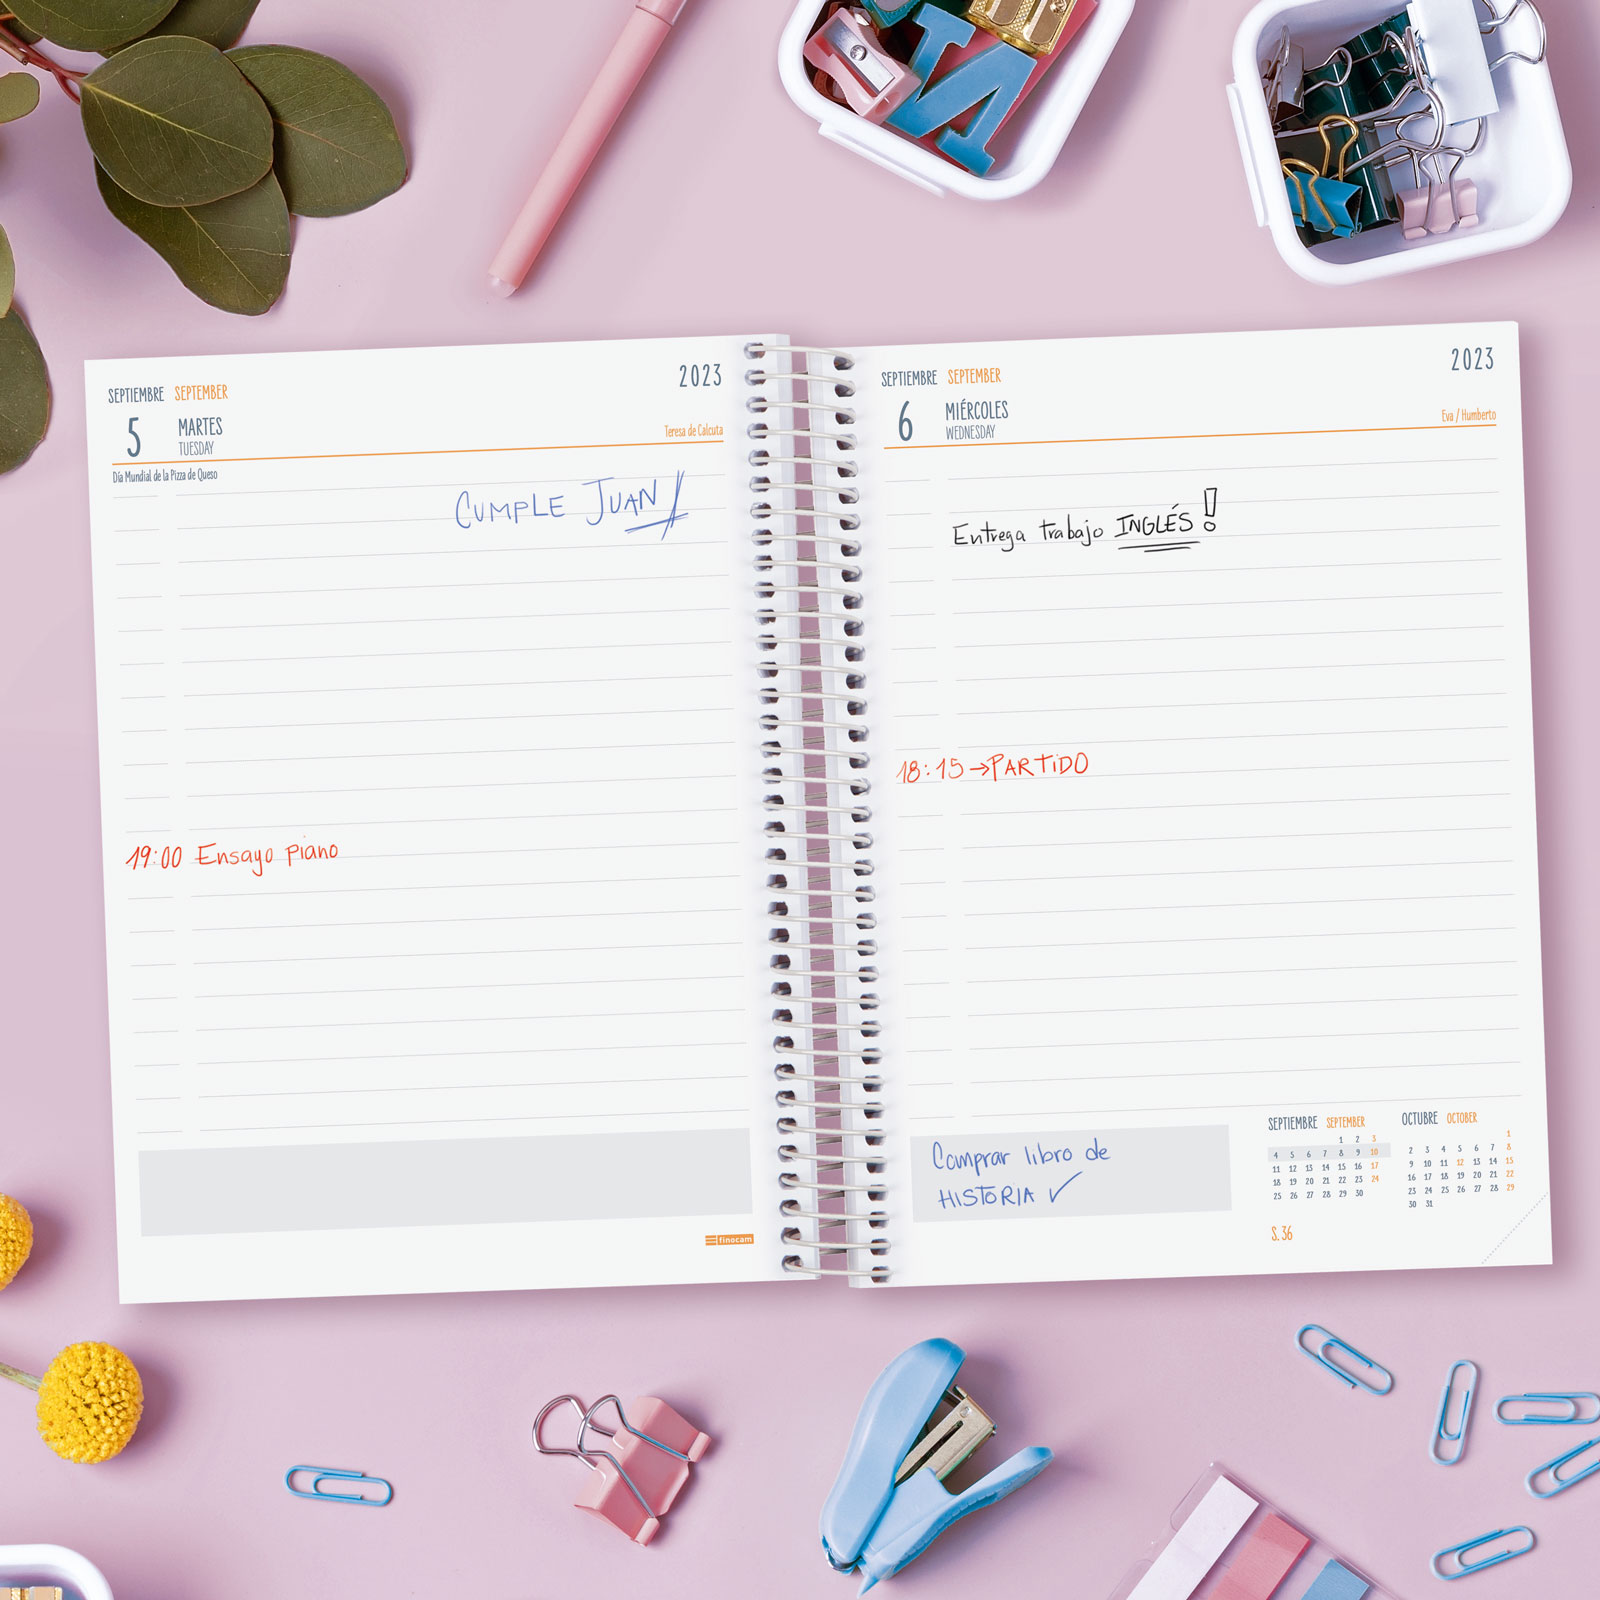 SEPTIEMBRE SEPTEMBER 2023
5 MARTES
TUESDAY
Teresa de Calcuta
Día Mundial de la Pizza de Queso
CUMPLE JUAN!
19:00 Ensayo piano
finocam
SEPTIEMBRE SEPTEMBER 2023
6 MIÉRCOLES
WEDNESDAY
Eva / Humberto
Entrega trabajo INGLÉS!
18:15 → PARTIDO
Comprar libro de
HISTORIA ✓
SEPTIEMBRE SEPTEMBER
1 2 3
4 5 6 7 8 9 10
11 12 13 14 15 16 17
18 19 20 21 22 23 24
25 26 27 28 29 30
S. 36
OCTUBRE OCTOBER
1
2 3 4 5 6 7 8
9 10 11 12 13 14 15
16 17 18 19 20 21 22
23 24 25 26 27 28 29
30 31
N